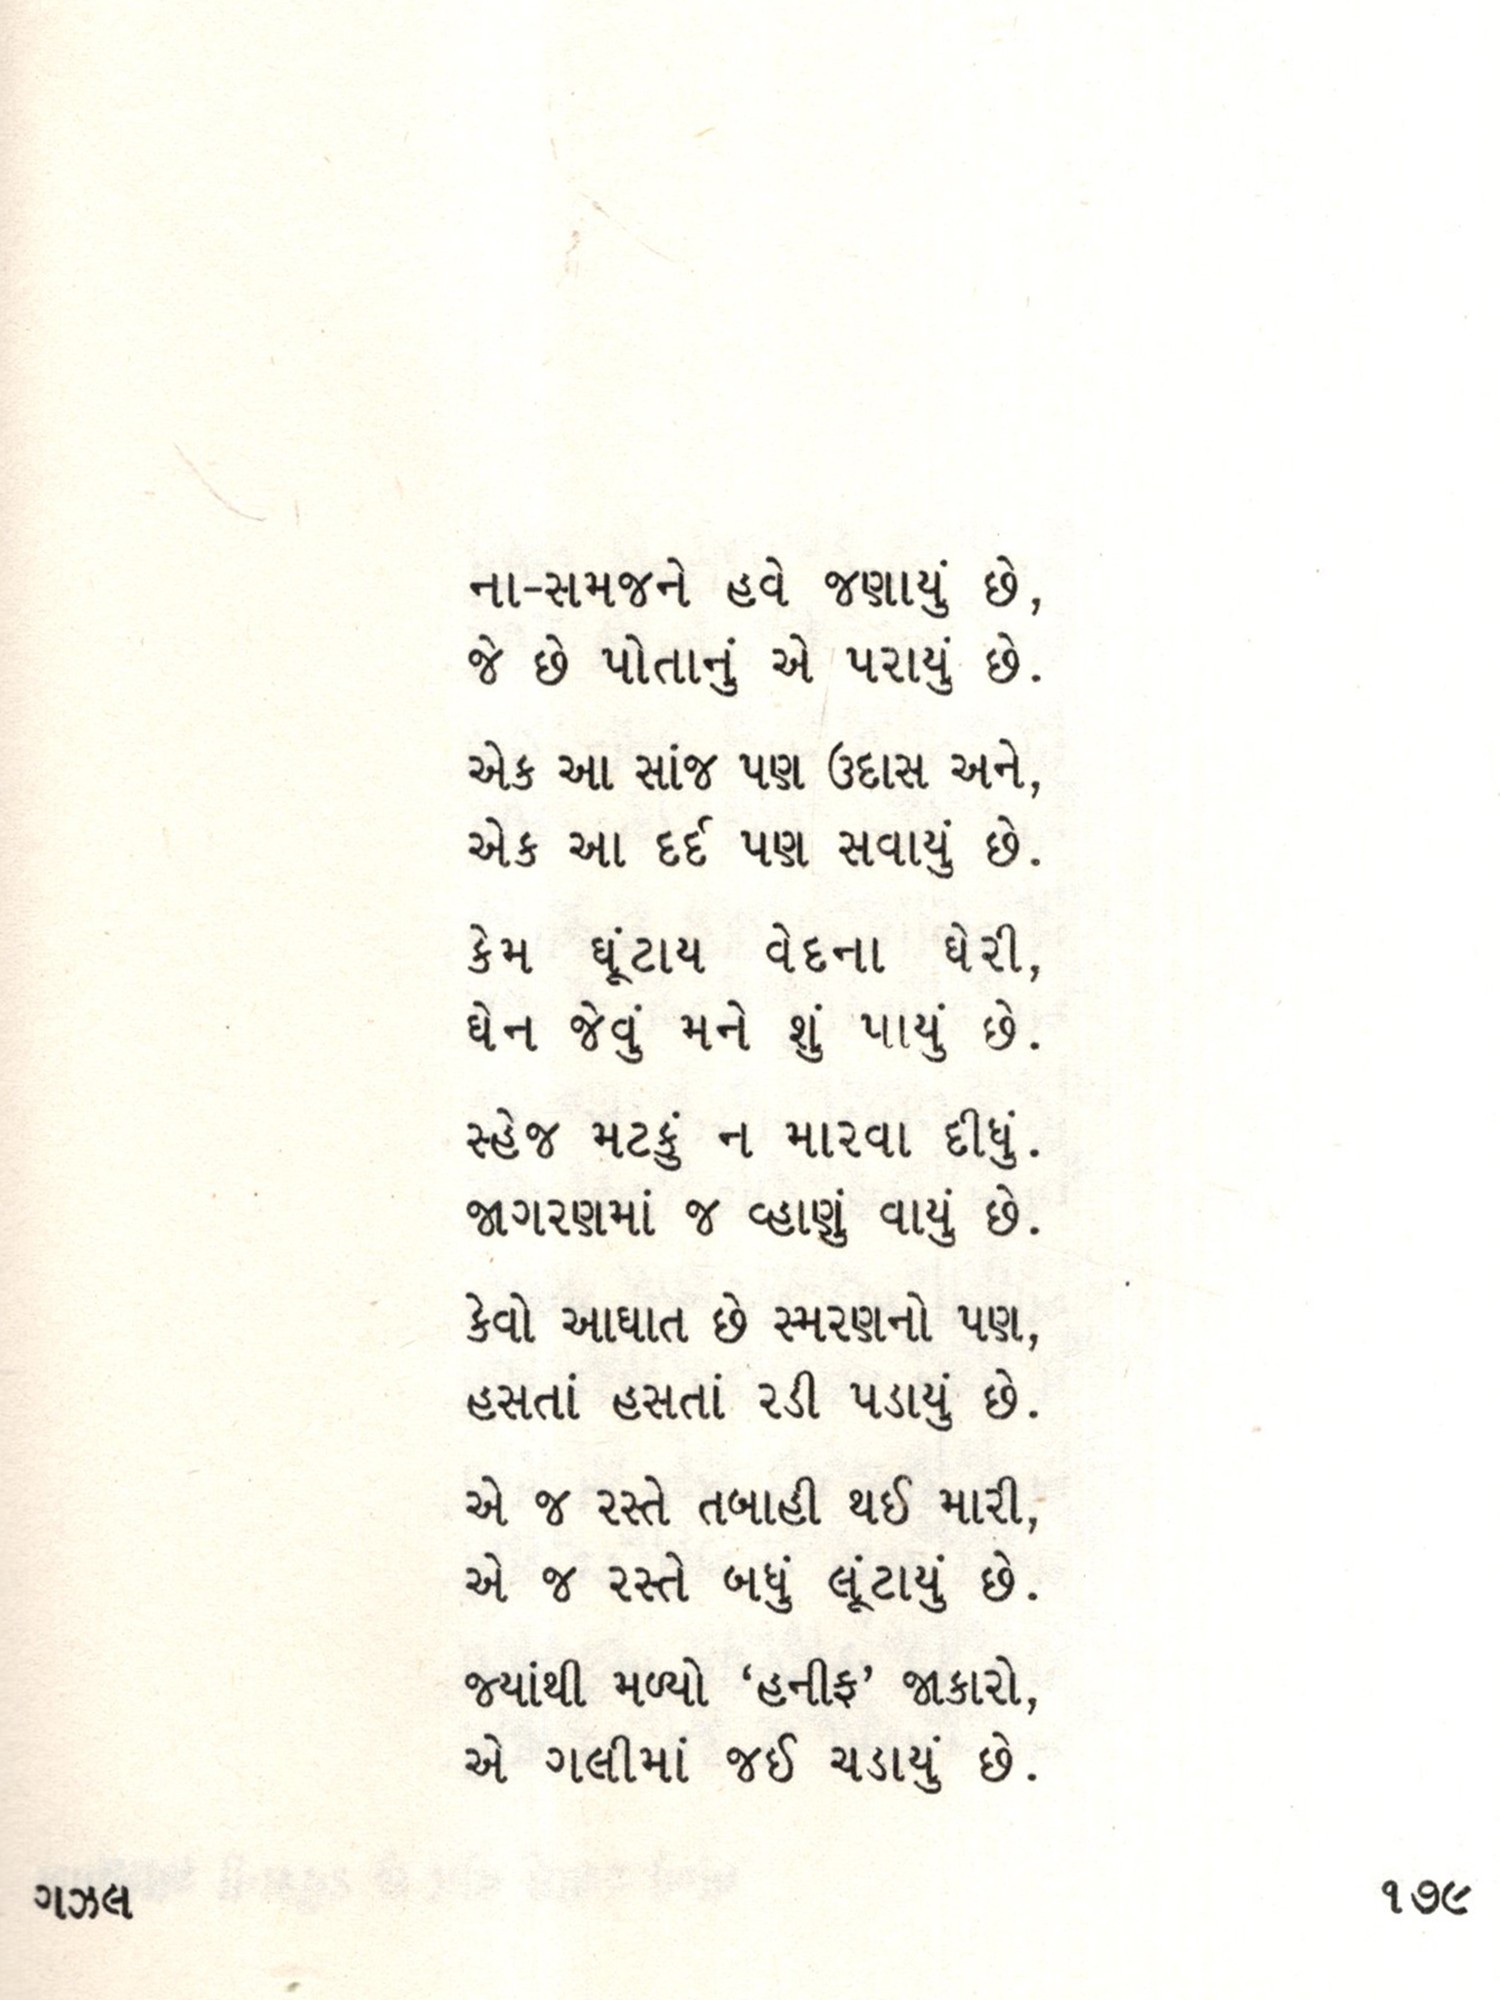 ના-સમજને હવે જણાયું છે,
જે છે પોતાનું એ પરાયું છે.
એક આ સાંજ પણ ઉદાસ અને,
એક આ દર્દ પણ સવાયું છે.
કેમ ઘૂંટાય વેદના ઘેરી,
ઘેન જેવું મને શું પાયું છે.
સ્હેજ મટકું ન મારવા દીધું.
જાગરણમાં જ વ્હાણું વાયું છે.
કેવો આઘાત છે સ્મરણનો પણ,
હસતાં હસતાં રડી પડાયું છે.
એ જ રસ્તે તબાહી થઈ મારી,
એ જ રસ્તે બધું લૂંટાયું છે.
જ્યાંથી મળ્યો ‘હનીફ’ જાકારો,
એ ગલીમાં જઈ ચડાયું છે.
ગઝલ ૧૭૯